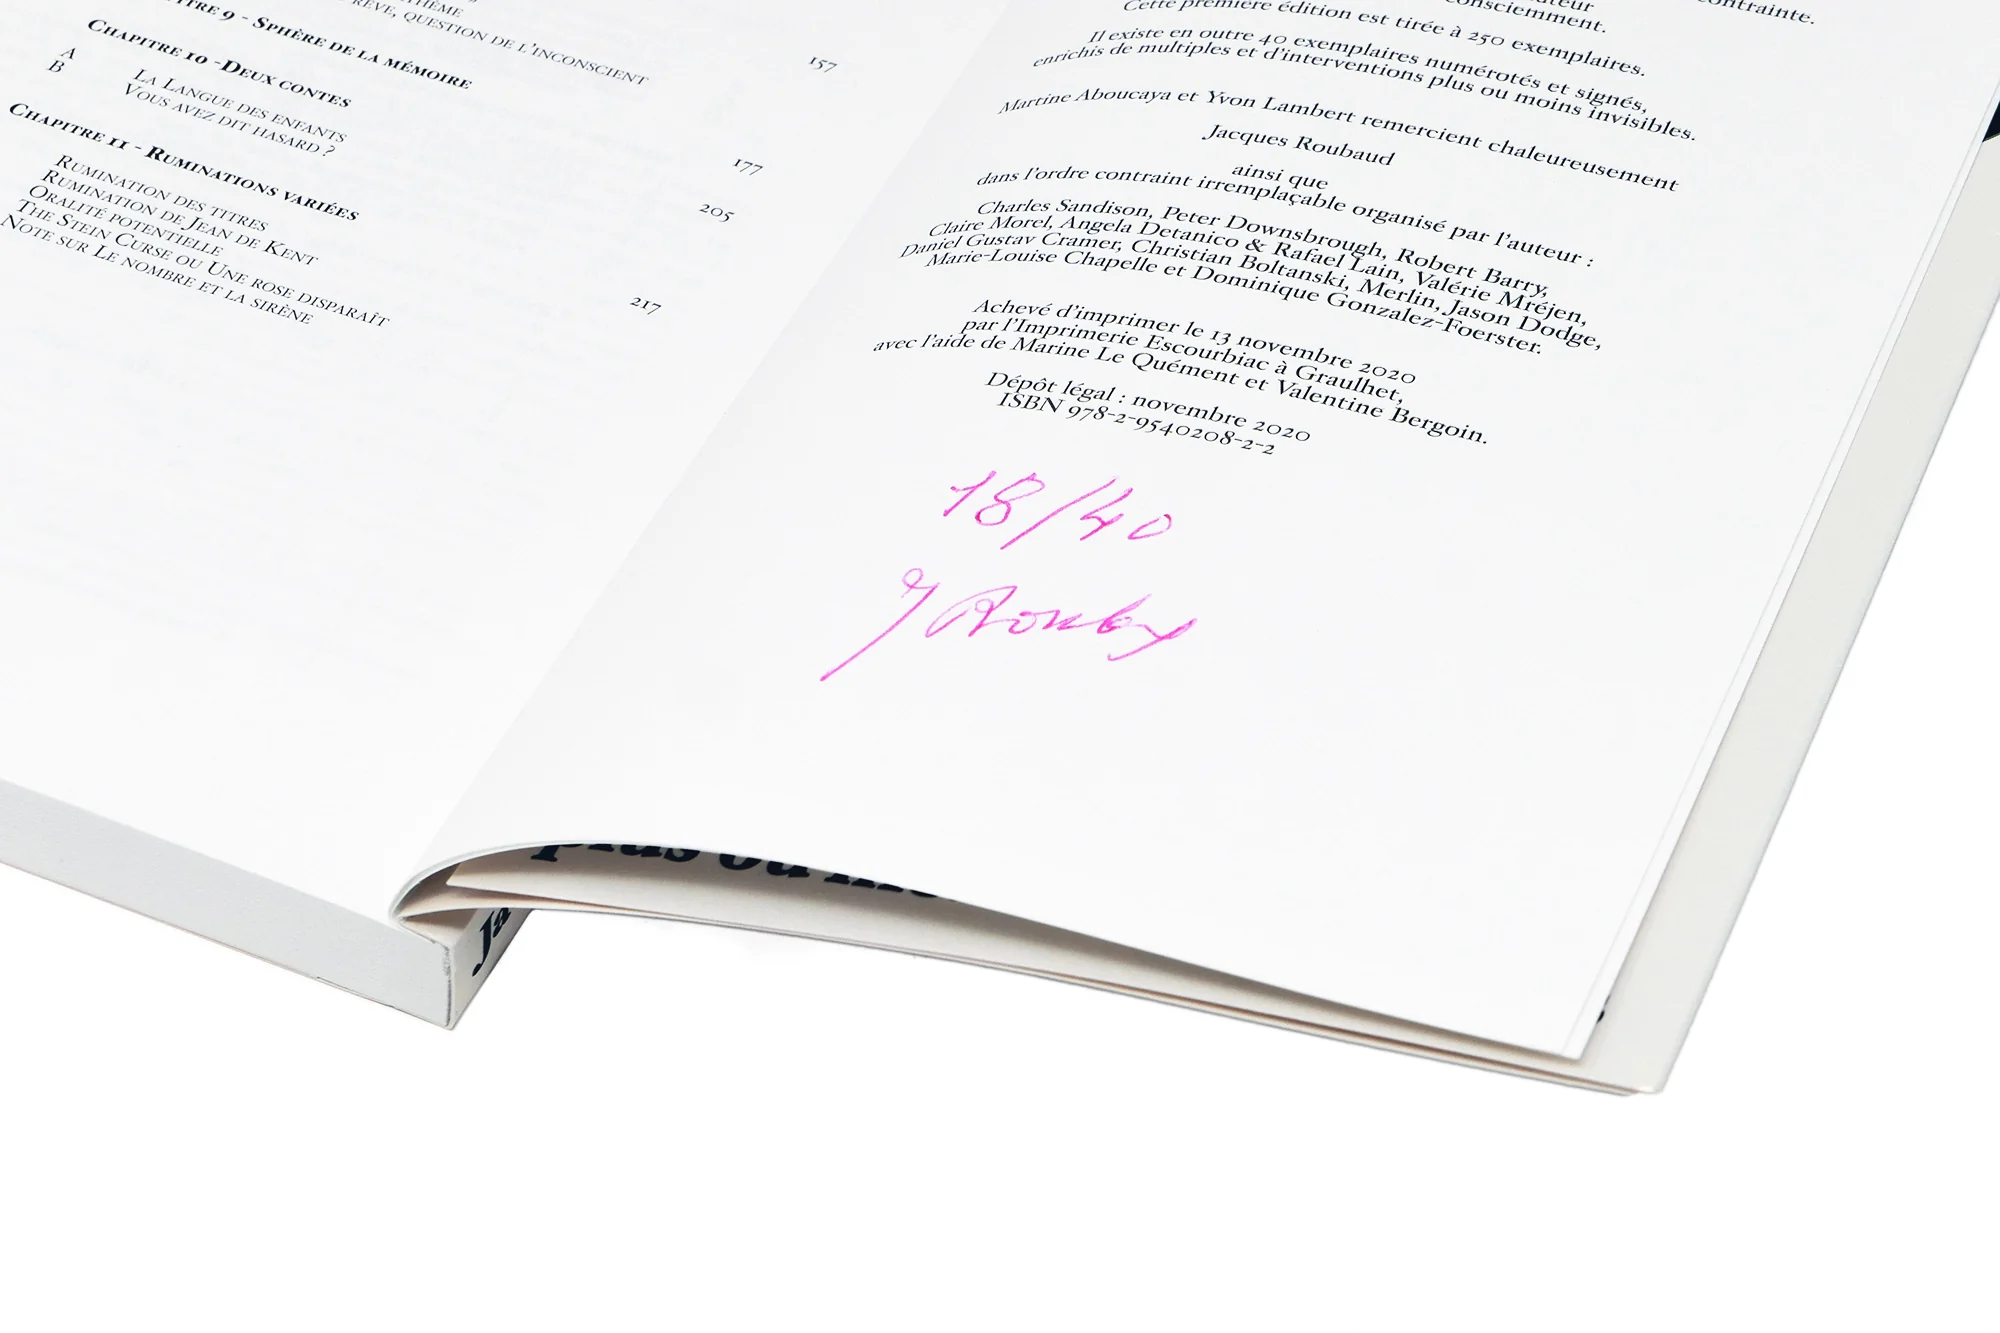 RÊVE, QUESTION DE L'INCONSCIENT
9 - SPHÈRE DE LA MÉMOIRE 157
CHAPITRE 10 -DEUX CONTES
A LA LANGUE DES ENFANTS
B VOUS AVEZ DIT HASARD ? 177
CHAPITRE 11 - RUMINATIONS VARIÉES 205
RUMINATION DES TITRES
RUMINATION DE JEAN DE KENT
ORALITÉ POTENTIELLE
THE STEIN CURSE OU UNE ROSE DISPARAÎT
NOTE SUR LE NOMBRE ET LA SIRÈNE 217
contrainte.
consciemment.
Cette première édition est tirée à 250 exemplaires.
Il existe en outre 40 exemplaires numérotés et signés,
enrichis de multiples et d'interventions plus ou moins invisibles.
Martine Aboucaya et Yvon Lambert remercient chaleureusement
Jacques Roubaud
ainsi que
dans l'ordre contraint irremplaçable organisé par l'auteur :
Charles Sandison, Peter Downsbrough, Robert Barry,
Claire Morel, Angela Detanico & Rafael Lain, Valérie Mréjen,
Daniel Gustav Cramer, Christian Boltanski, Merlin, Jason Dodge,
Marie-Louise Chapelle et Dominique Gonzalez-Foerster.
Achevé d'imprimer le 13 novembre 2020
par l'Imprimerie Escourbiac à Graulhet,
avec l'aide de Marine Le Quément et Valentine Bergoin.
Dépôt légal : novembre 2020
ISBN 978-2-9540208-2-2
18/40
plus ou